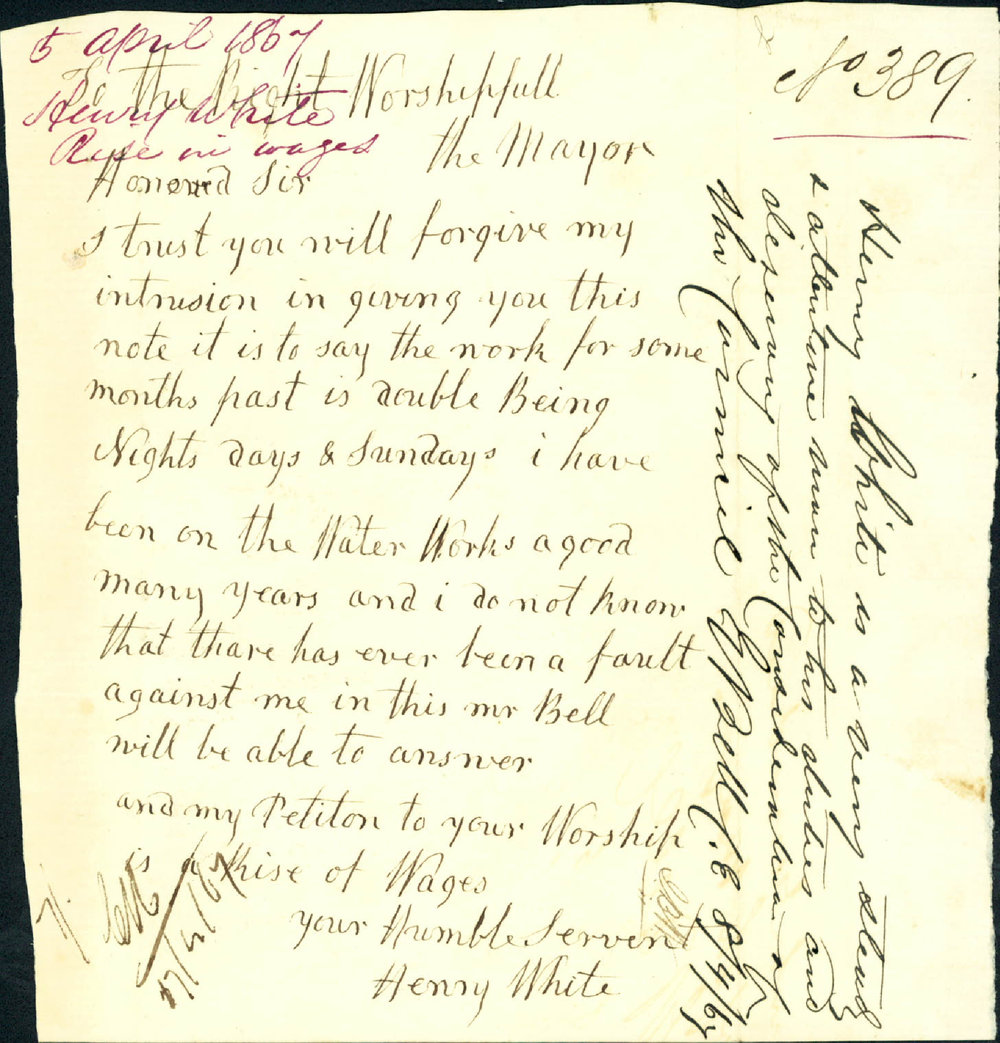 5 April 1867
Henry White
Rise in wages
No 389.
To The Right Worshipfull
the Mayor
Honored Sir
I trust you will forgive my
intrusion in giving you this
note it is to say the work for some
months past is double Being
Nights days & Sundays i have
been on the Water Works a good
many years and i do not know
that thare has ever been a fault
against me in this mr Bell
will be able to answer
and my Petiton to your Worship
is a Rise of Wages
your Humble Servent
Henry White
Henry White is a very steady
& attentive man to his duties and
deserving of the Consideration of
the Council
Bell C.E 8/4/67